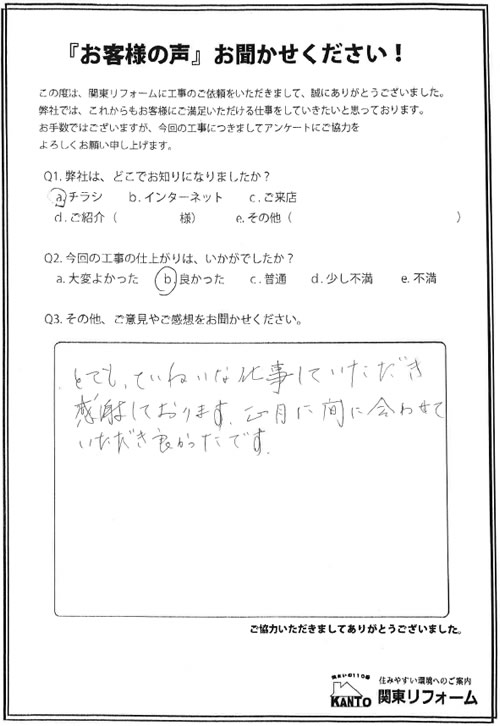 『お客様の声』お聞かせください！
この度は、関東リフォームに工事のご依頼をいただきまして、誠にありがとうございました。
弊社では、これからもお客様にご満足いただける仕事をしていきたいと思っております。
お手数ではございますが、今回の工事につきましてアンケートにご協力を
よろしくお願い申し上げます。
Q1. 弊社は、どこでお知りになりましたか？
a. チラシ b. インターネット c. ご来店
d. ご紹介（ 様） e. その他（ ）
Q2. 今回の工事の仕上がりは、いかがでしたか？
a. 大変よかった b. 良かった c. 普通 d. 少し不満 e. 不満
Q3. その他、ご意見やご感想をお聞かせください。
とても、ていねいな仕事していただき
感謝しております。正月に間に合わせて
いただき良かったです。
ご協力いただきましてありがとうございました。
住まいの110番
KANTO
住みやすい環境へのご案内
関東リフォーム